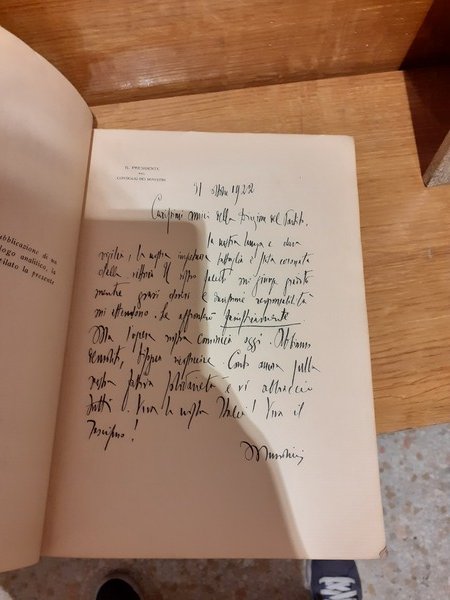 bblicazione di un
logo analitico,
ilato la presente
IL PRESIDENTE
DEL
CONSIGLIO DEI MINISTRI
31 ottobre 1922
Carissimi amici della Direzione del Partito,
la nostra lunga e dura
vigilia, la nostra battaglia è stata coronata
dalla vittoria. Il vostro saluto mi giunge gradito
mentre gravi doveri e responsabilità
mi attendono. Le affronterò
Ma l'opera nostra comincia oggi. Abbiamo
Conto sulla
vostra solidarietà e vi abbraccio
tutti. Viva la nostra Italia! Viva il
Fascismo!
Mussolini